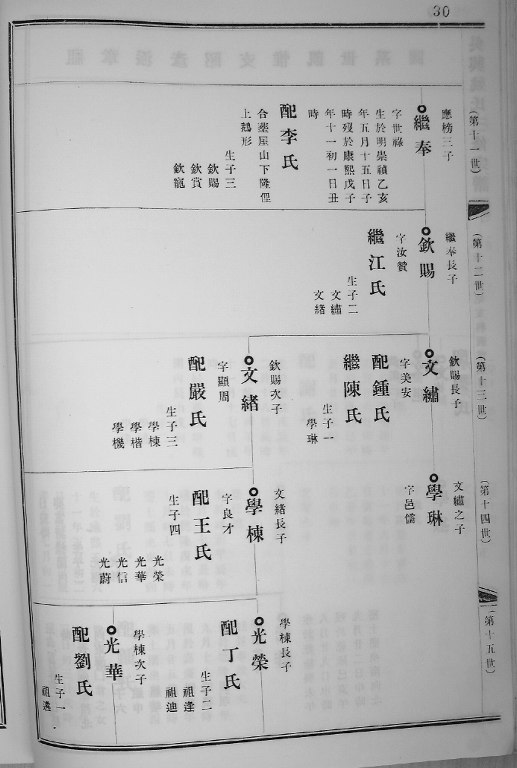 30
(第十一世)
應榜三子
繼奉
字世祿
生於明崇禎乙亥
年五月十五日子
時歿於康熙戊子
年十一初一日丑
時
配李氏
合葬屋山下隆俚
上鵝形
生子三
欽賜
欽賞
欽寵
(第十二世)
繼奉長子
欽賜
字汝贊
繼江氏
生子二
文繡
文緒
(第十三世)
欽賜長子
文繡
字美安
配鍾氏
繼陳氏
生子一
學琳
欽賜次子
文緒
字顯周
配嚴氏
生子三
學棟
學楷
學機
(第十四世)
文繡之子
學琳
字邑儒
文緒長子
學棟
字良才
配王氏
生子四
光榮
光華
光信
光蔚
(第十五世)
學棟長子
光榮
配丁氏
生子二
祖逢
祖迪
學棟次子
光華
配劉氏
生子一
祖遴